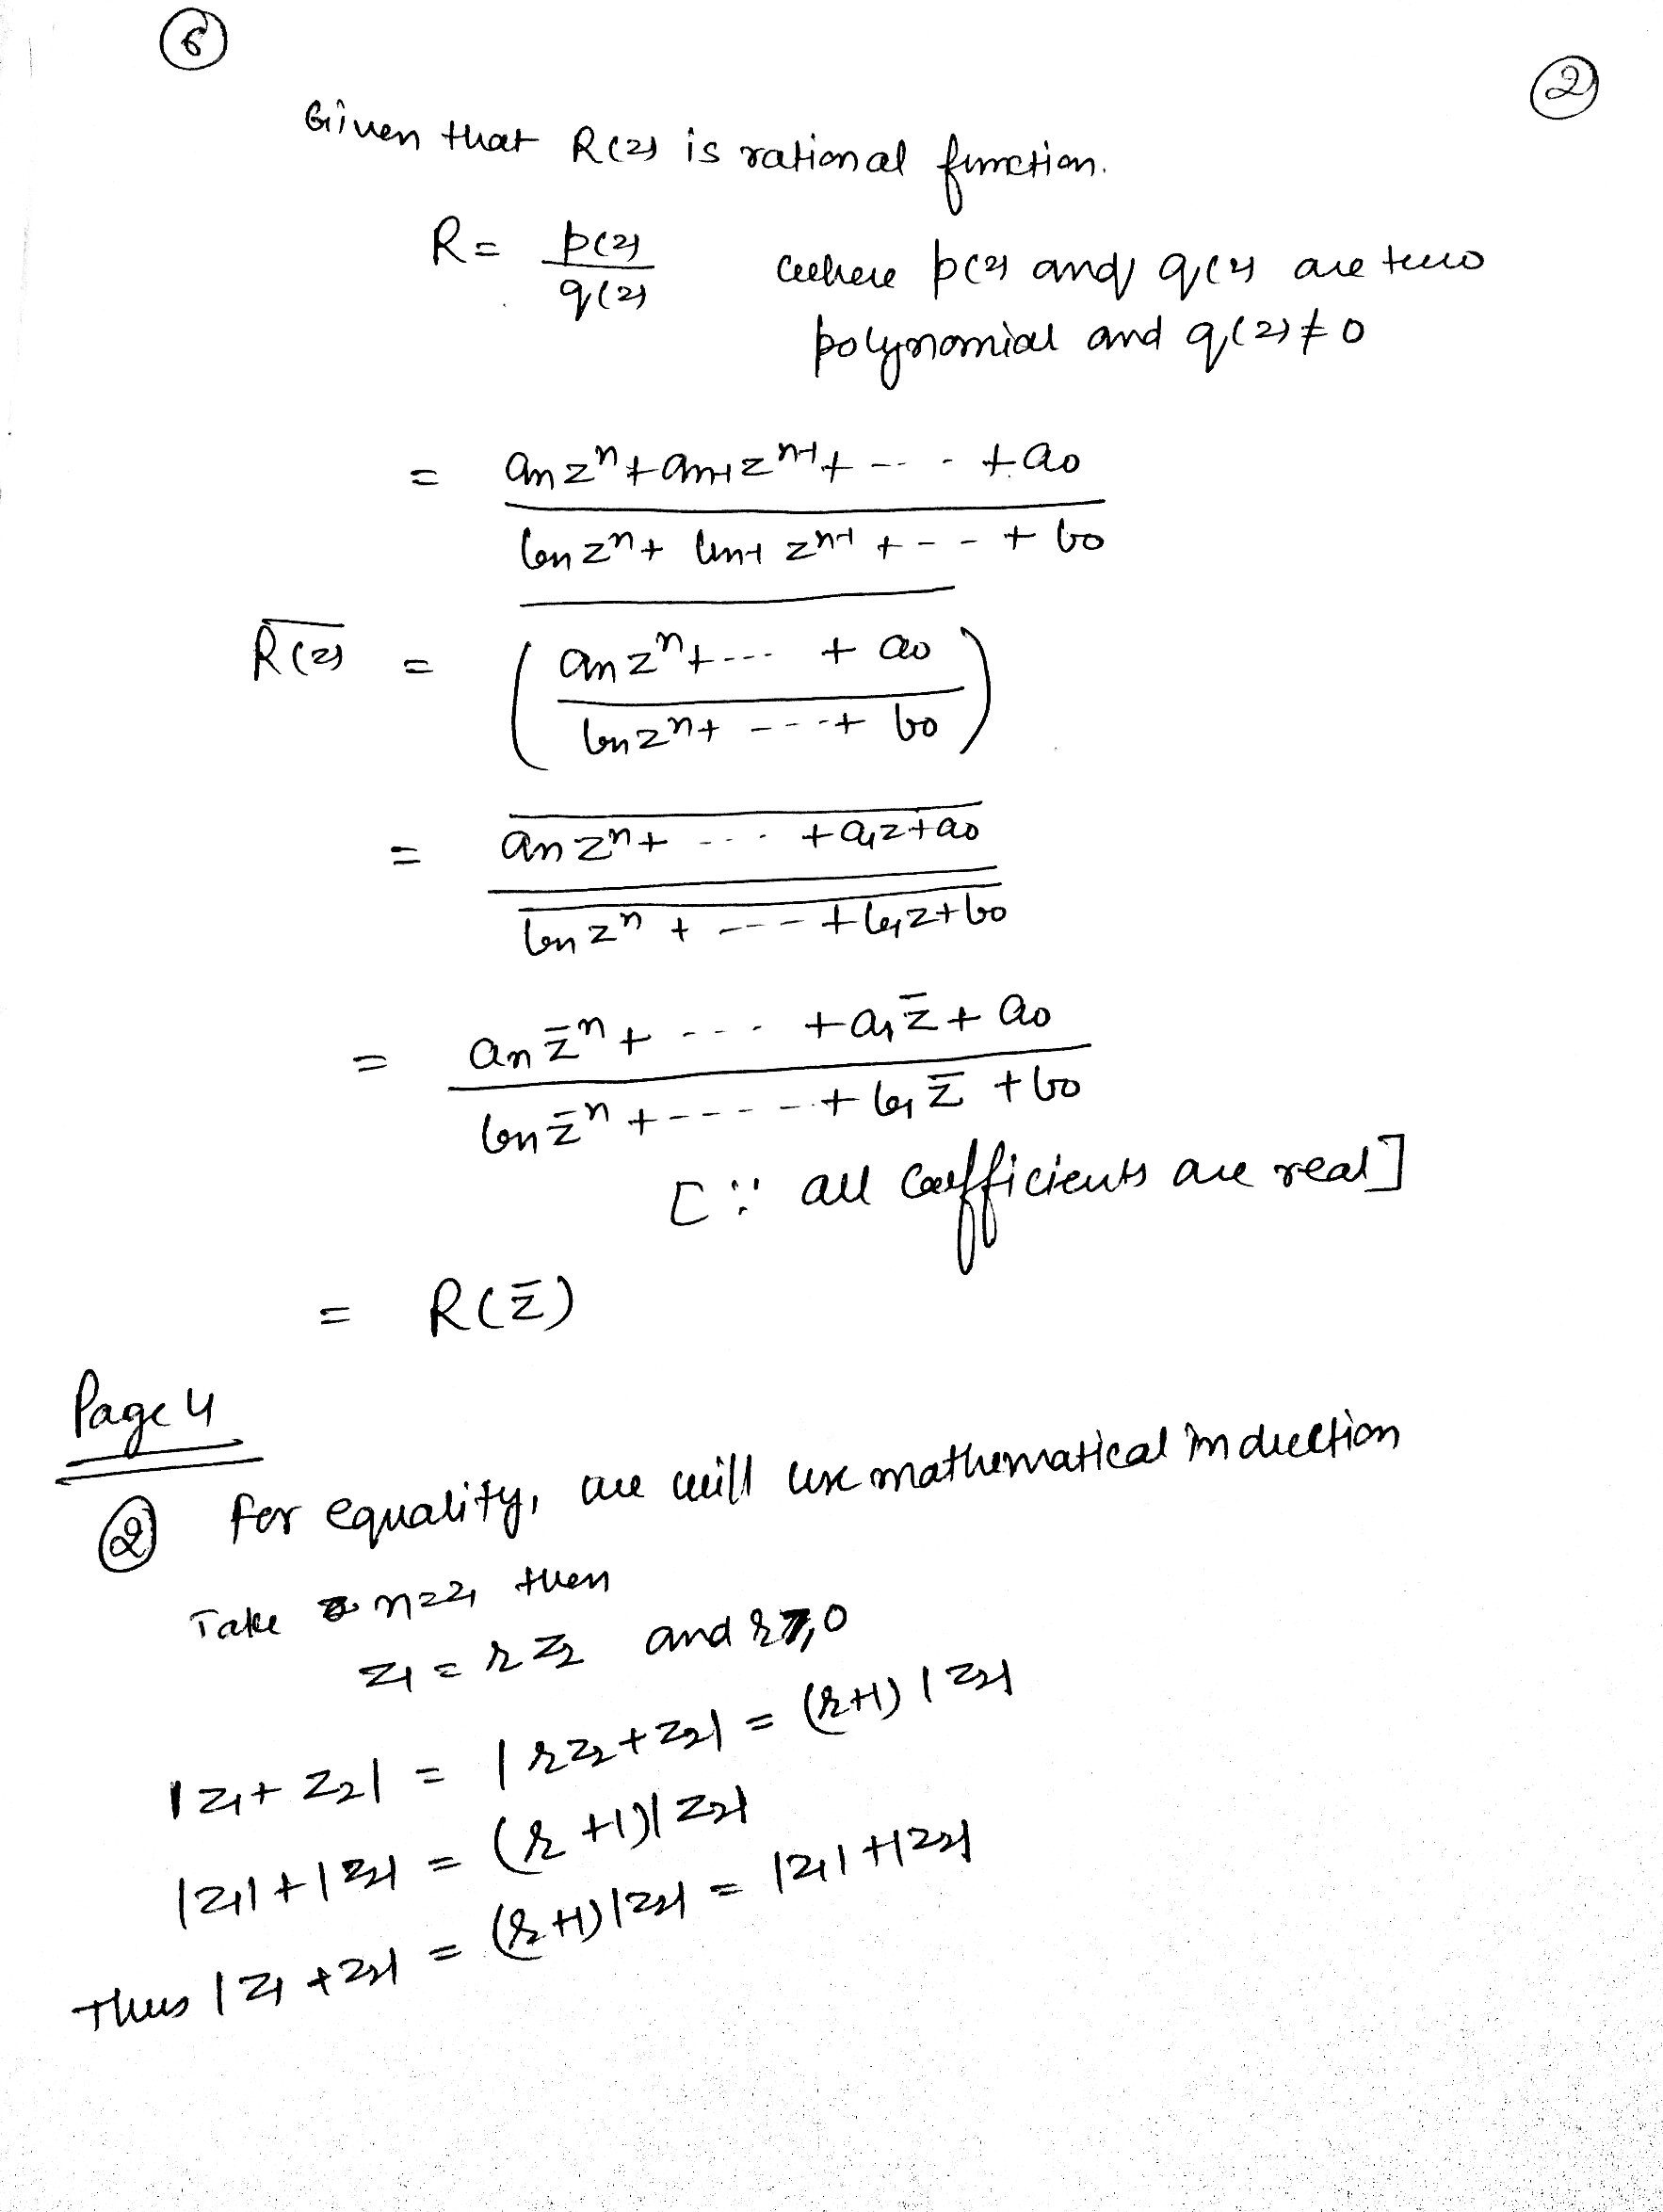 6
2
Given that R(z) is rational function.
R = p(z)/q(z) where p(z) and q(z) are two
polynomial and q(z) ≠ 0
= (aₙzⁿ + aₙ₋₁zⁿ⁻¹ + --- + a₀)/(bₙzⁿ + bₙ₋₁zⁿ⁻¹ + --- + b₀)
\overline{R(z)} = \overline{((aₙzⁿ + --- + a₀)/(bₙzⁿ + --- + b₀))}
= \overline{aₙzⁿ + --- + a₁z + a₀}/\overline{bₙzⁿ + --- + b₁z + b₀}
= (aₙz̄ⁿ + --- + a₁z̄ + a₀)/(bₙz̄ⁿ + ---- + b₁z̄ + b₀)
[∵ all coefficients are real]
= R(z̄)
Page 4
2 for equality, we will use mathematical induction
Take n=2, then
z₁ = r z₂ and r ≥ 0
|z₁ + z₂| = |r z₂ + z₂| = (r+1)|z₂|
|z₁| + |z₂| = (r+1)|z₂|
Thus |z₁ + z₂| = (r+1)|z₂| = |z₁| + |z₂|